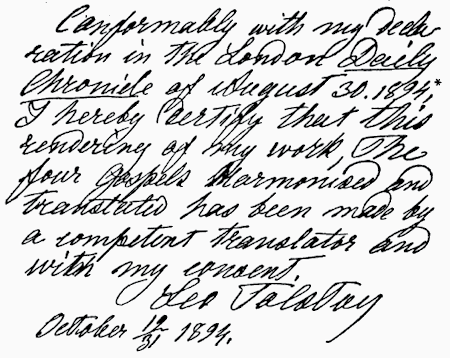 Conformably with my decla-
ration in the London Daily
Chronicle of August 30. 1894,*
I hereby certify that this
rendering of my work, The
four Gospels harmonised and
translated has been made by
a competent translator and
with my concent.
Leo Tolstoy
October 19/31 1894.